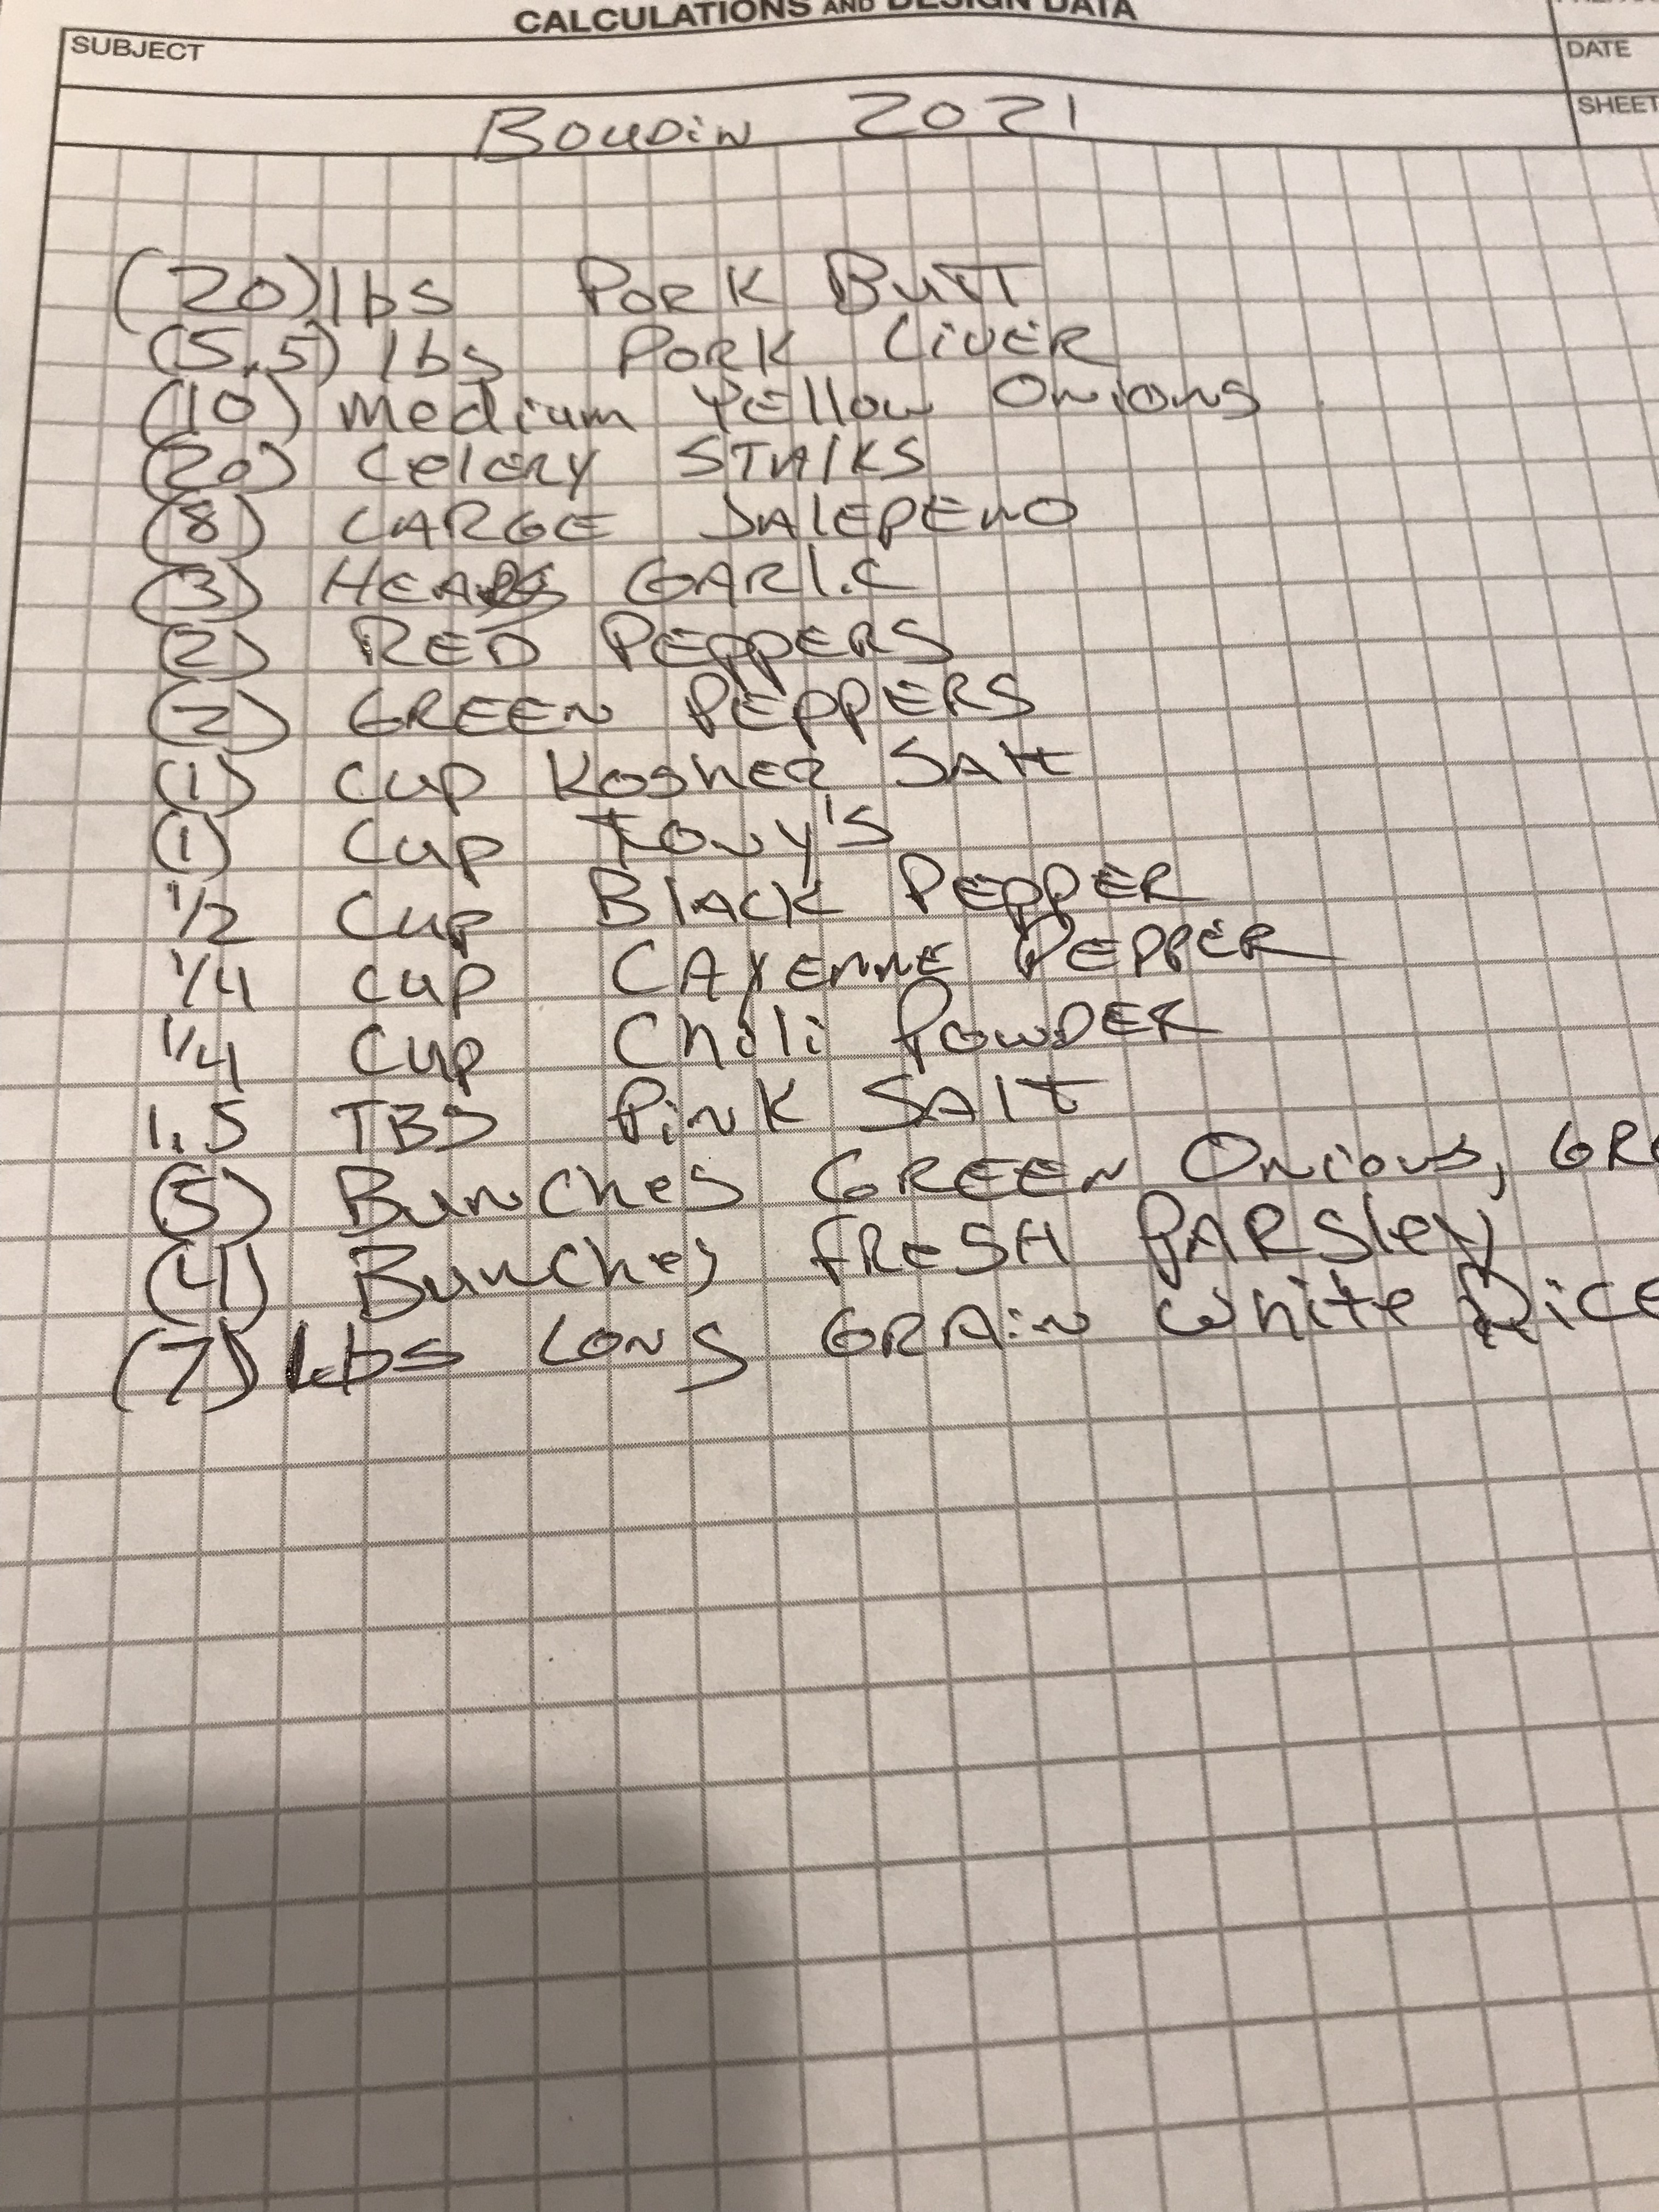 CALCULATIONS AND DESIGN DATA
SUBJECT
DATE
SHEET
Boudin 2021
(20) lbs PORK BUTT
(5.5) lbs PORK LIVER
(10) Medium Yellow Onions
(20) Celery STALKS
(8) LARGE JALEPENO
(3) HEADS GARLIC
(2) RED PEPPERS
(2) GREEN PEPPERS
(1) Cup Kosher SALT
(1) Cup Tony's
1/2 Cup Black PEPPER
1/4 Cup CAYENNE PEPPER
1/4 Cup Chili POWDER
1.5 TBS Pink SALT
(5) Bunches GREEN Onions,
(4) Bunches FRESH PARSley
(7) Lbs LONG GRAin White Rice